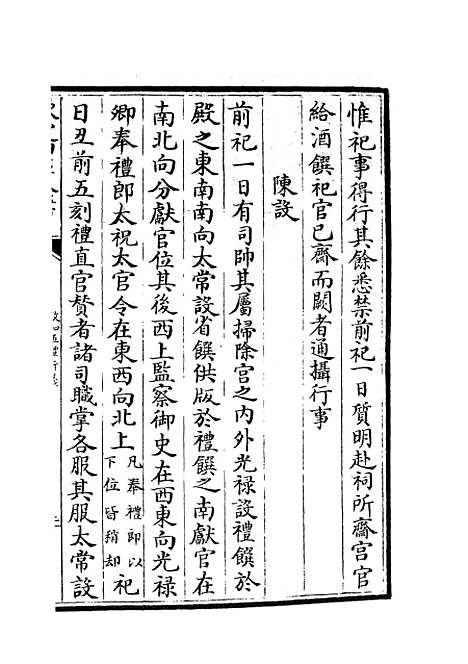 惟祀事得行其餘悉禁前祀一日質明赴祠所齋宮官
給酒饌祀官已齋而闕者通攝行事
陳設
前祀一日有司帥其屬掃除宮之內外光祿設禮饌於
殿之東南南向太常設省饌供版於禮饌之南獻官在
南北向分獻官位其後西上監察御史在西東向光祿
卿奉禮郎太祝太官令在東西向北上凡奉禮即以下位皆稍却祀
日丑前五刻禮直官贊者諸司職掌各服其服太常設
政和五禮新儀